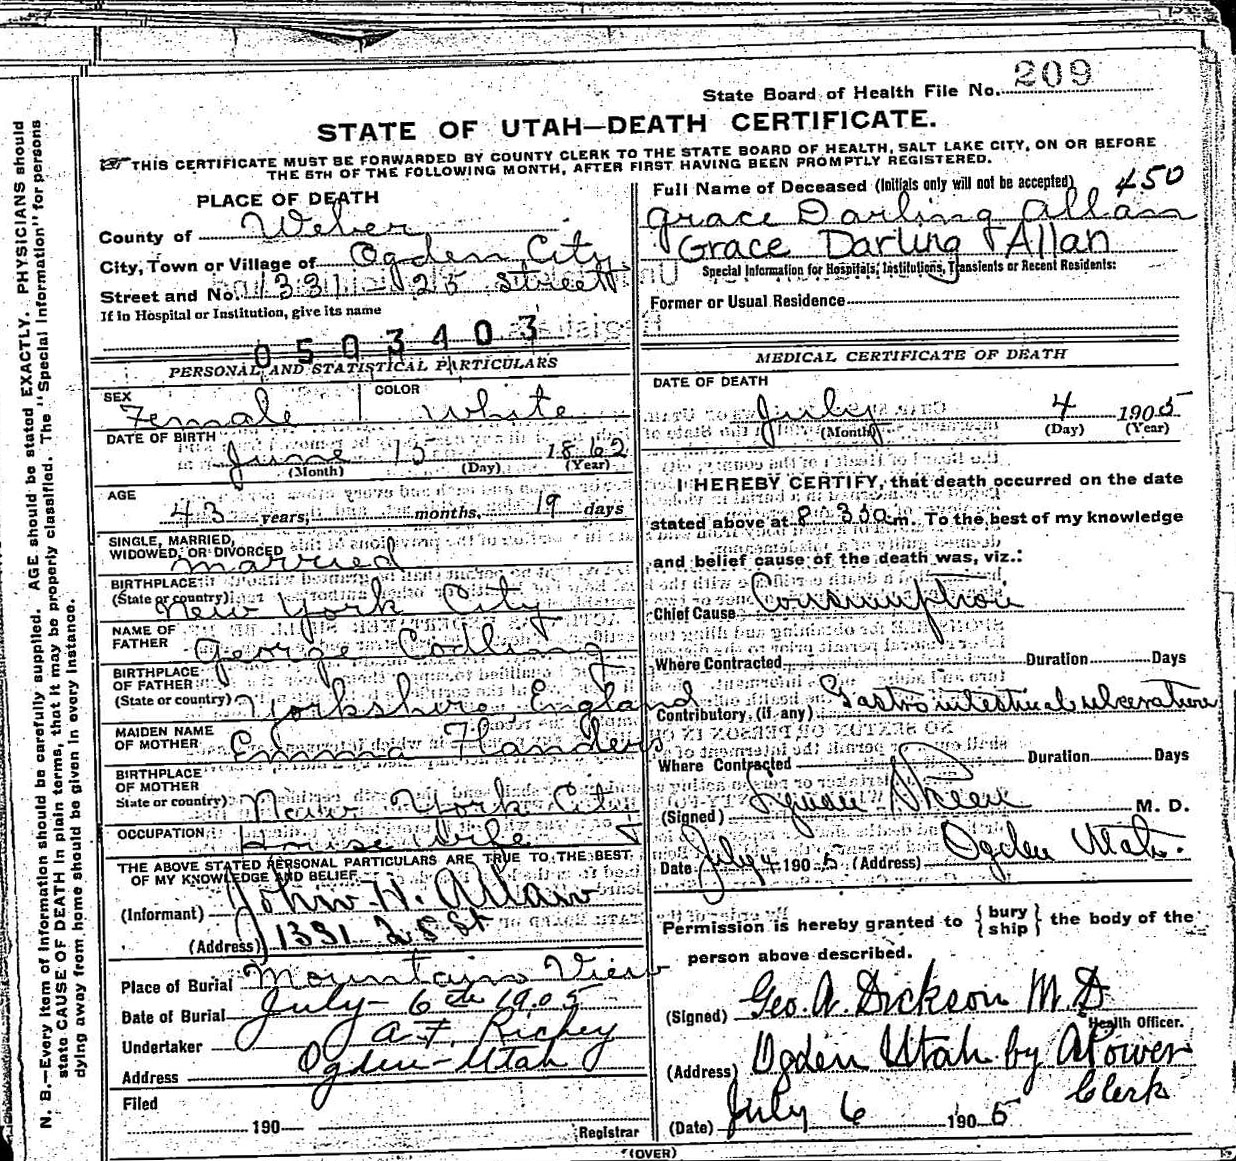 209
State Board of Health File No.
STATE OF UTAH—DEATH CERTIFICATE.
THIS CERTIFICATE MUST BE FORWARDED BY COUNTY CLERK TO THE STATE BOARD OF HEALTH, SALT LAKE CITY, ON OR BEFORE
THE 5TH OF THE FOLLOWING MONTH, AFTER FIRST HAVING BEEN PROMPTLY REGISTERED.
N. B.—Every item of information should be carefully supplied. AGE should be stated EXACTLY. PHYSICIANS should
state CAUSE OF DEATH in plain terms, that it may be properly classified. The "Special Information" for persons
dying away from home should be given in every instance.
PLACE OF DEATH
County of Weber
City, Town or Village of Ogden City
Street and No. 1331 - 25 Street
If in Hospital or Institution, give its name
0503403
PERSONAL AND STATISTICAL PARTICULARS
SEX COLOR
Female White
DATE OF BIRTH
June 15 1862
(Month) (Day) (Year)
AGE
43 years, months, 19 days
SINGLE, MARRIED,
WIDOWED, OR DIVORCED Married
BIRTHPLACE
(State or country) New York City
NAME OF
FATHER George Codling
BIRTHPLACE
OF FATHER
(State or country) Yorkshire England
MAIDEN NAME
OF MOTHER Emma Flanders
BIRTHPLACE
OF MOTHER
State or country) New York City
OCCUPATION House Wife
THE ABOVE STATED PERSONAL PARTICULARS ARE TRUE TO THE BEST
OF MY KNOWLEDGE AND BELIEF
(Informant) John H. Allan
(Address) 1331 25 St
Place of Burial Mountain View
Date of Burial July 6th 1905
Undertaker Richey
Address Ogden Utah
Filed
190
Registrar
Full Name of Deceased (Initials only will not be accepted) 450
Grace Darling Allan
Grace Darling Allan
Special Information for Hospitals, Institutions, Transients or Recent Residents:
Former or Usual Residence
MEDICAL CERTIFICATE OF DEATH
DATE OF DEATH
July 4 1905
(Month) (Day) (Year)
I HEREBY CERTIFY, that death occurred on the date
stated above at 8:30 a m. To the best of my knowledge
and belief cause of the death was, viz.:
Chief Cause Consumption
Where Contracted Duration Days
Contributory (if any) Gastrointestinal ulceration
Where Contracted Duration Days
(Signed) M. D.
Date July 4 1905 (Address) Ogden Utah.
Permission is hereby granted to {bury ship} the body of the
person above described.
(Signed) Geo. A. Dickson M D
Health Officer.
(Address) Ogden Utah by A Power
Clerk
(Date) July 6 1905
(OVER)